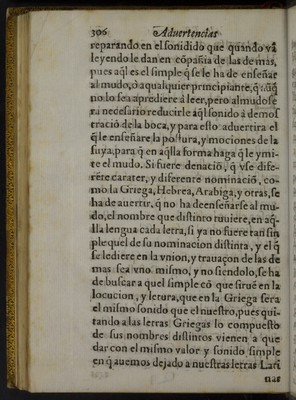 306 Aduertencias
reparando en el sonidido que quando vã
leyendo le dan en cõpañia de las demas,
pues aq̃l es el simple q̃ se le ha de enseñar
al mudo, ò a qualquier principiante, q̃ aũq̃
no lo sea aprediere â leer, pero al mudo se
ra necesario reducirle aq̃l sonido â demos
tració de la boca, y para esto aduertira el
q̃ le enseñare, la postura, y mociones de la
suya, para q̃ en aq̃lla forma haga q̃ le ymi-
te el mudo. Si fuere denació, q̃ vse dife-
rẽte carater, y diferente nominació, co-
mo la Griega, Hebrea, Arabiga, y otras, se
ha de auertir, q̃ no ha de enseñarse al mu-
do, el nombre que distinto tuuiere, en aq̃-
lla lengua cada letra, si ya no fuere tan sin
ple quel de su nominacion distinta, y el q̃
se le diere en la vnion, y trauaçon de las de
mas sea vno mismo, y no siendolo, se ha
de buscar a quel simple cõ que siruẽ en la
locucion, y letura, que en la Griega sera
el mismo sonido que el nuestro, pues qui-
tando a las letras Griegas lo compuesto
de sus nombres distintos vienen a que
dar con el mismo valor y sonido simple
en q̃ auemos dejado a nuestras letras Lati
nas